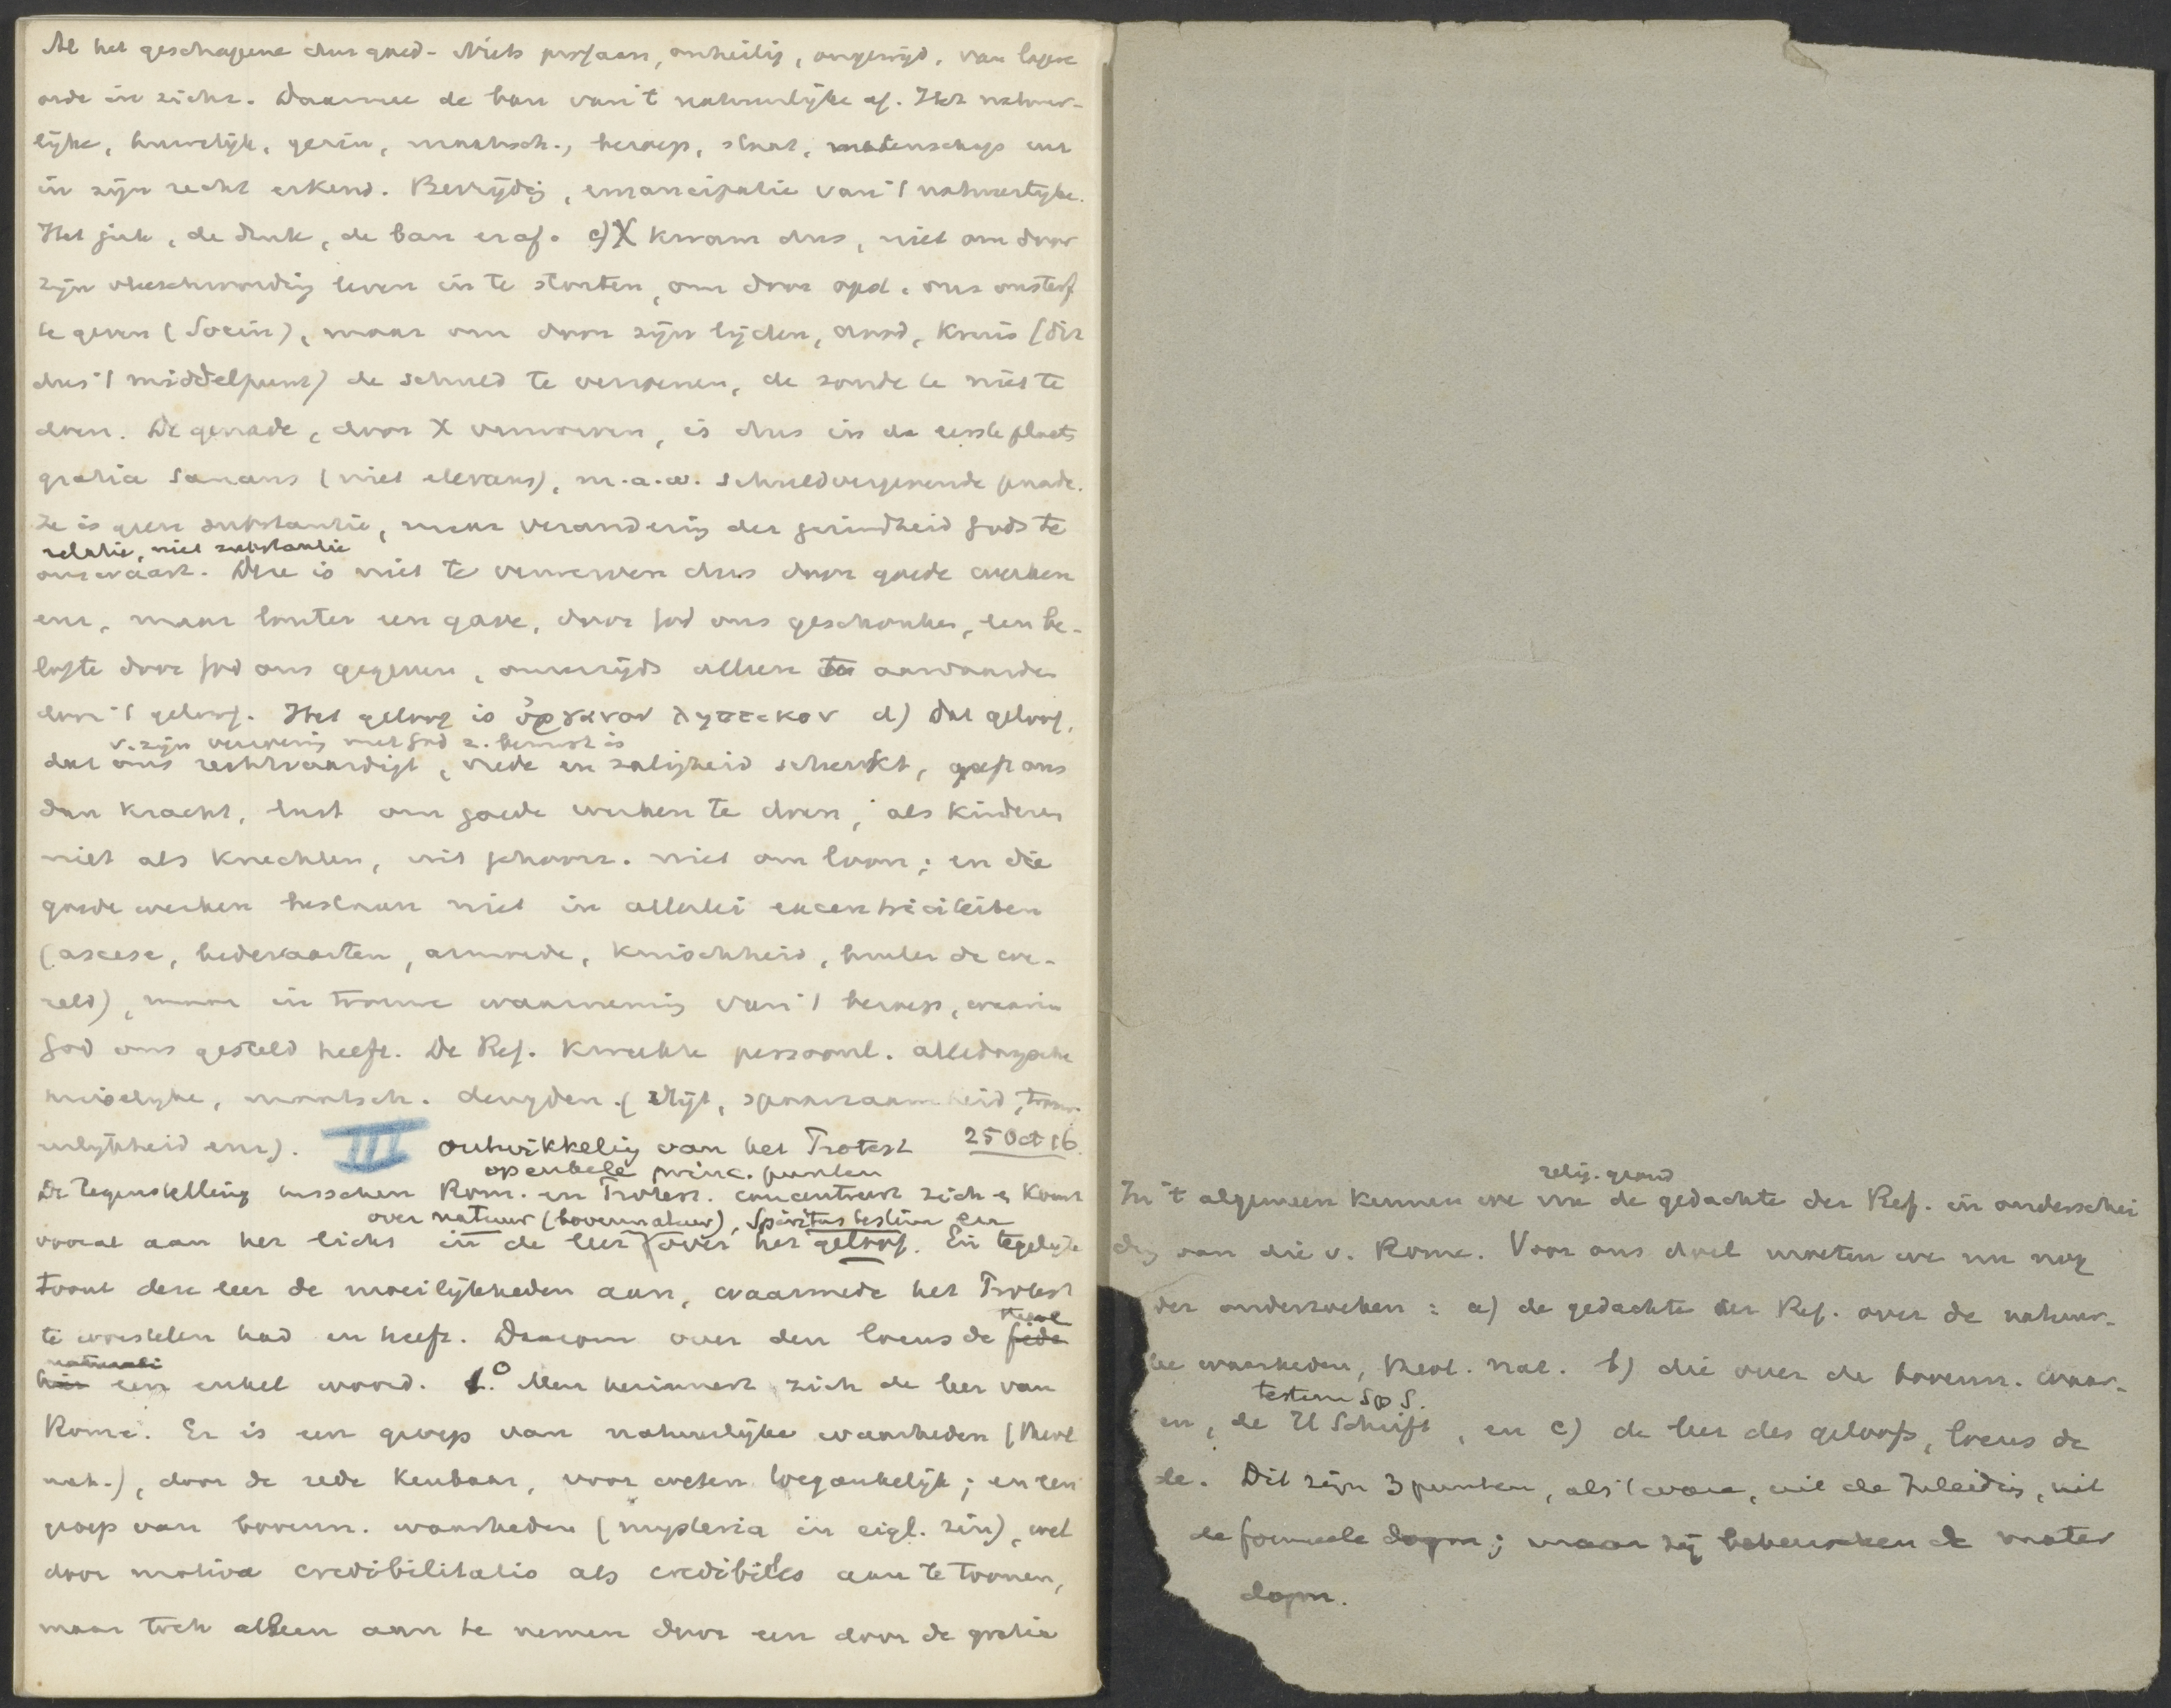 Al het geschapene dus goed - Niets profaan, onheilig, ongewijd, van lagere
orde in zichz. Daarmee de ban van 't natuurlijke af. Het natuur-
lijke, huwelijk, gezin, maatsch., beroep, staat, wetenschap enz
in zijn recht erkend. Bevrijdg, emancipatie van 't natuurlijke.
Het juk, de druk, de ban eraf. c) X kwam dus, niet om door
zijn vleeschwording leven in te storten, om door opst. ons onsterf
te geven (Socin), maar om door zijn lijden, dood, kruis (dit
dus 't middelpunt) de schuld te verzoenen, de zonde te niet te
doen. De genade, door X verworven, is dus in de eerste plaats
gratia sanans (niet elevans), m.a.w. schuldvergevende genade.
Ze is geen substantie, maar verandering der gezindheid Gods te
relatie, niet substantie
onswaart. Deze is niet te verwerven dus door goede werken
enz, maar louter een gave, door God ons geschonken, een be-
lofte door God ons gegeven, onzerzijds alleen te aanvaarden
door 't geloof. Het geloof is ὀργανον ληπτικον d) Dat geloof,
v. zijn verzoening met God z. bewust is
dat ons rechtvaardigt, vrede en zaligheid schenkt, geeft ons
dan kracht, lust om goede werken te doen, als kinderen
niet als knechten, uit gehoorz. niet om loon; en die
goede werken bestaan niet in allerlei excentriciteiten
(ascese, bedevaarten, armoede, kuischheid, buiten de we-
reld), maar in trouwe waarneming van 't beroep, waarin
God ons gesteld heeft. De Ref. kweekte persoonl. alledaagsche
huiselijke, maatsch. deugden (vlijt, spaarzaamheid, trouw.
erlijkheid enz). III ontwikkeling van het Protest 25 Oct 16
op enkele princ. punten
De tegenstelling tusschen Rom. en Protest. concentreert zich en komt
over natuur (bovennatuur), Spiritus testim en
vooral aan het licht in de leer over het geloof. En tegelijk
toont deze leer de moeilijkheden aan, waarmede het Protest
te worstelen had en heeft. Daarom over den locus de fide
theol
naturali
hier een enkel woord. 1.° Men herinnert zich de leer van
Rome. Er is een groep van natuurlijke waarheden (theol
nat.), door de rede kenbaar, voor weten toegankelijk; en een
groep van bovenn. waarheden (mysteria in eigl. zin), wel
door motiva credibilitatis als credibiles aan te toonen,
maar toch alleen aan te nemen door een door de gratia
relig. grond
In 't algemeen kennen we nu de gedachte der Ref. in onderschei
dg van die v. Rome. Voor ons doel moeten we nu nog
der onderzoeken: a) de gedachte der Ref. over de natuur-
ke waarheden, theol. nat. b) die over de bovenn. waar-
testim Sp S.
en, de H Schrift, en c) de leer des geloofs, locus de
de. Dit zijn 3 punten, als 't ware, uit de Inleidg, uit
de formeele dogm; maar zij beheerschen de mater
dogm.